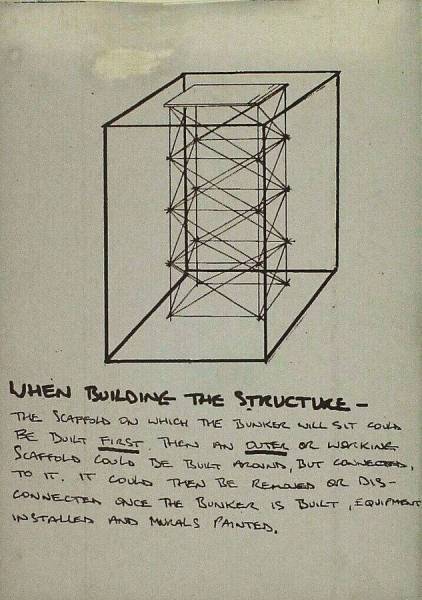 WHEN BUILDING THE STRUCTURE -
THE SCAFFOLD ON WHICH THE BUNKER WILL SIT COULD
BE BUILT FIRST. THEN AN OUTER OR WORKING
SCAFFOLD COULD BE BUILT AROUND, BUT CONNECTED,
TO IT. IT COULD THEN BE REMOVED OR DIS-
CONNECTED ONCE THE BUNKER IS BUILT, EQUIPMENT
INSTALLED AND MURALS PAINTED.